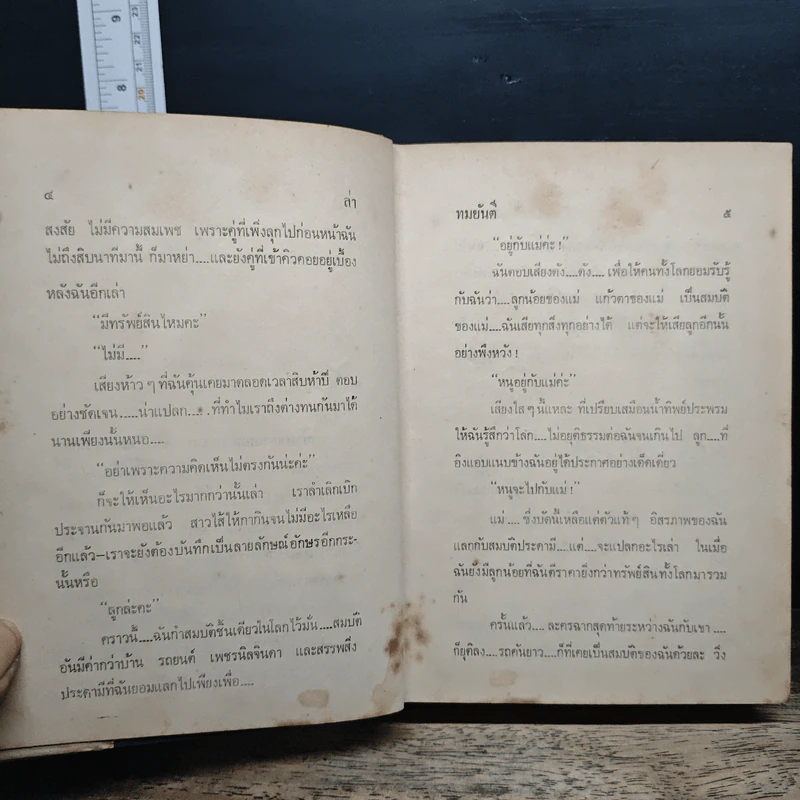 9
23
22
8
21
20
๔ ล่า
สงสัย ไม่มีความสมเพช เพราะคู่ที่เพิ่งลุกไปก่อนหน้าฉัน
ไม่ถึงสิบนาทีมานี้ ก็มาหย่า....และยังคู่ที่เข้าคิวคอยอยู่เบื้อง
หลังฉันอีกเล่า
“มีทรัพย์สินไหมคะ”
“ไม่มี....”
เสียงห้าว ๆ ที่ฉันคุ้นเคยมาตลอดเวลาสิบห้าปี ตอบ
อย่างชัดเจน.....น่าแปลก....ที่ทำไมเราถึงต่างทนกันมาได้
นานเพียงนั้นหนอ....
“อย่าเพราะความคิดเห็นไม่ตรงกันน่ะค่ะ”
ก็จะให้เห็นอะไรมากกว่านั้นเล่า เราลำเลิกเบิก
ประจานกันมาพอแล้ว สาวไส้ให้กากินจนไม่มีอะไรเหลือ
อีกแล้ว—เราจะยังต้องบันทึกเป็นลายลักษณ์อักษรอีกกระ-
นั้นหรือ
“ลูกล่ะคะ”
คราวนี้....ฉันกำสมบัติชิ้นเดียวในโลกไว้มั่น....สมบัติ
อันมีค่ากว่าบ้าน รถยนต์ เพชรนิลจินดา และสรรพสิ่ง
ประดามีที่ฉันยอมแลกไปเพียงเพื่อ....
ทมยันตี ๕
“อยู่กับแม่ค่ะ !”
ฉันตอบเสียงดัง....ดัง.... เพื่อให้คนทั้งโลกยอมรับรู้
กับฉันว่า....ลูกน้อยของแม่ แก้วตาของแม่ เป็นสมบัติ
ของแม่....ฉันเสียทุกสิ่งทุกอย่างได้ แต่จะให้เสียลูกอีกนั้น
อย่าพึงหวัง !
“หนูอยู่กับแม่ค่ะ”
เสียงใส ๆ นี้แหละ ที่เปรียบเสมือนน้ำทิพย์ประพรม
ให้ฉันรู้สึกว่าโลก....ไม่อยุติธรรมต่อฉันจนเกินไป ลูก....ที่
อิงแอบแนบข้างฉันอยู่ได้ประกาศอย่างเด็ดเดี่ยว
“หนูจะไปกับแม่ !”
แม่.... ซึ่งบัดนี้เหลือแต่ตัวแท้ๆ อิสรภาพของฉัน
แลกกับสมบัติประดามี....แต่....จะแปลกอะไรเล่า ในเมื่อ
ฉันยังมีลูกน้อยที่ฉันตีราคายิ่งกว่าทรัพย์สินทั้งโลกมารวม
กัน
ครั้นแล้ว....ละครฉากสุดท้ายระหว่างฉันกับเขา....
ก็ยุติลง....รถคันยาว....ก็ที่เคยเป็นสมบัติของฉันด้วยละ วิ่ง